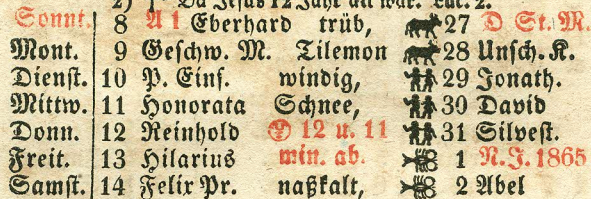 2) Da Jesus 12 Jahr alt war. Luc. 2.
Sonnt. 8 A 1 Eberhard trüb, 27 D St. M.
Mont. 9 Geschw. M. Tilemon 28 Unsch. K.
Dienst. 10 P. Eins. windig, 29 Jonath.
Mittw. 11 Honorata Schnee, 30 David
Donn. 12 Reinhold 12 u. 11 31 Silvest.
Freit. 13 Hilarius min. ab. 1 N. J. 1865
Samst. 14 Felix Pr. naßkalt, 2 Abel